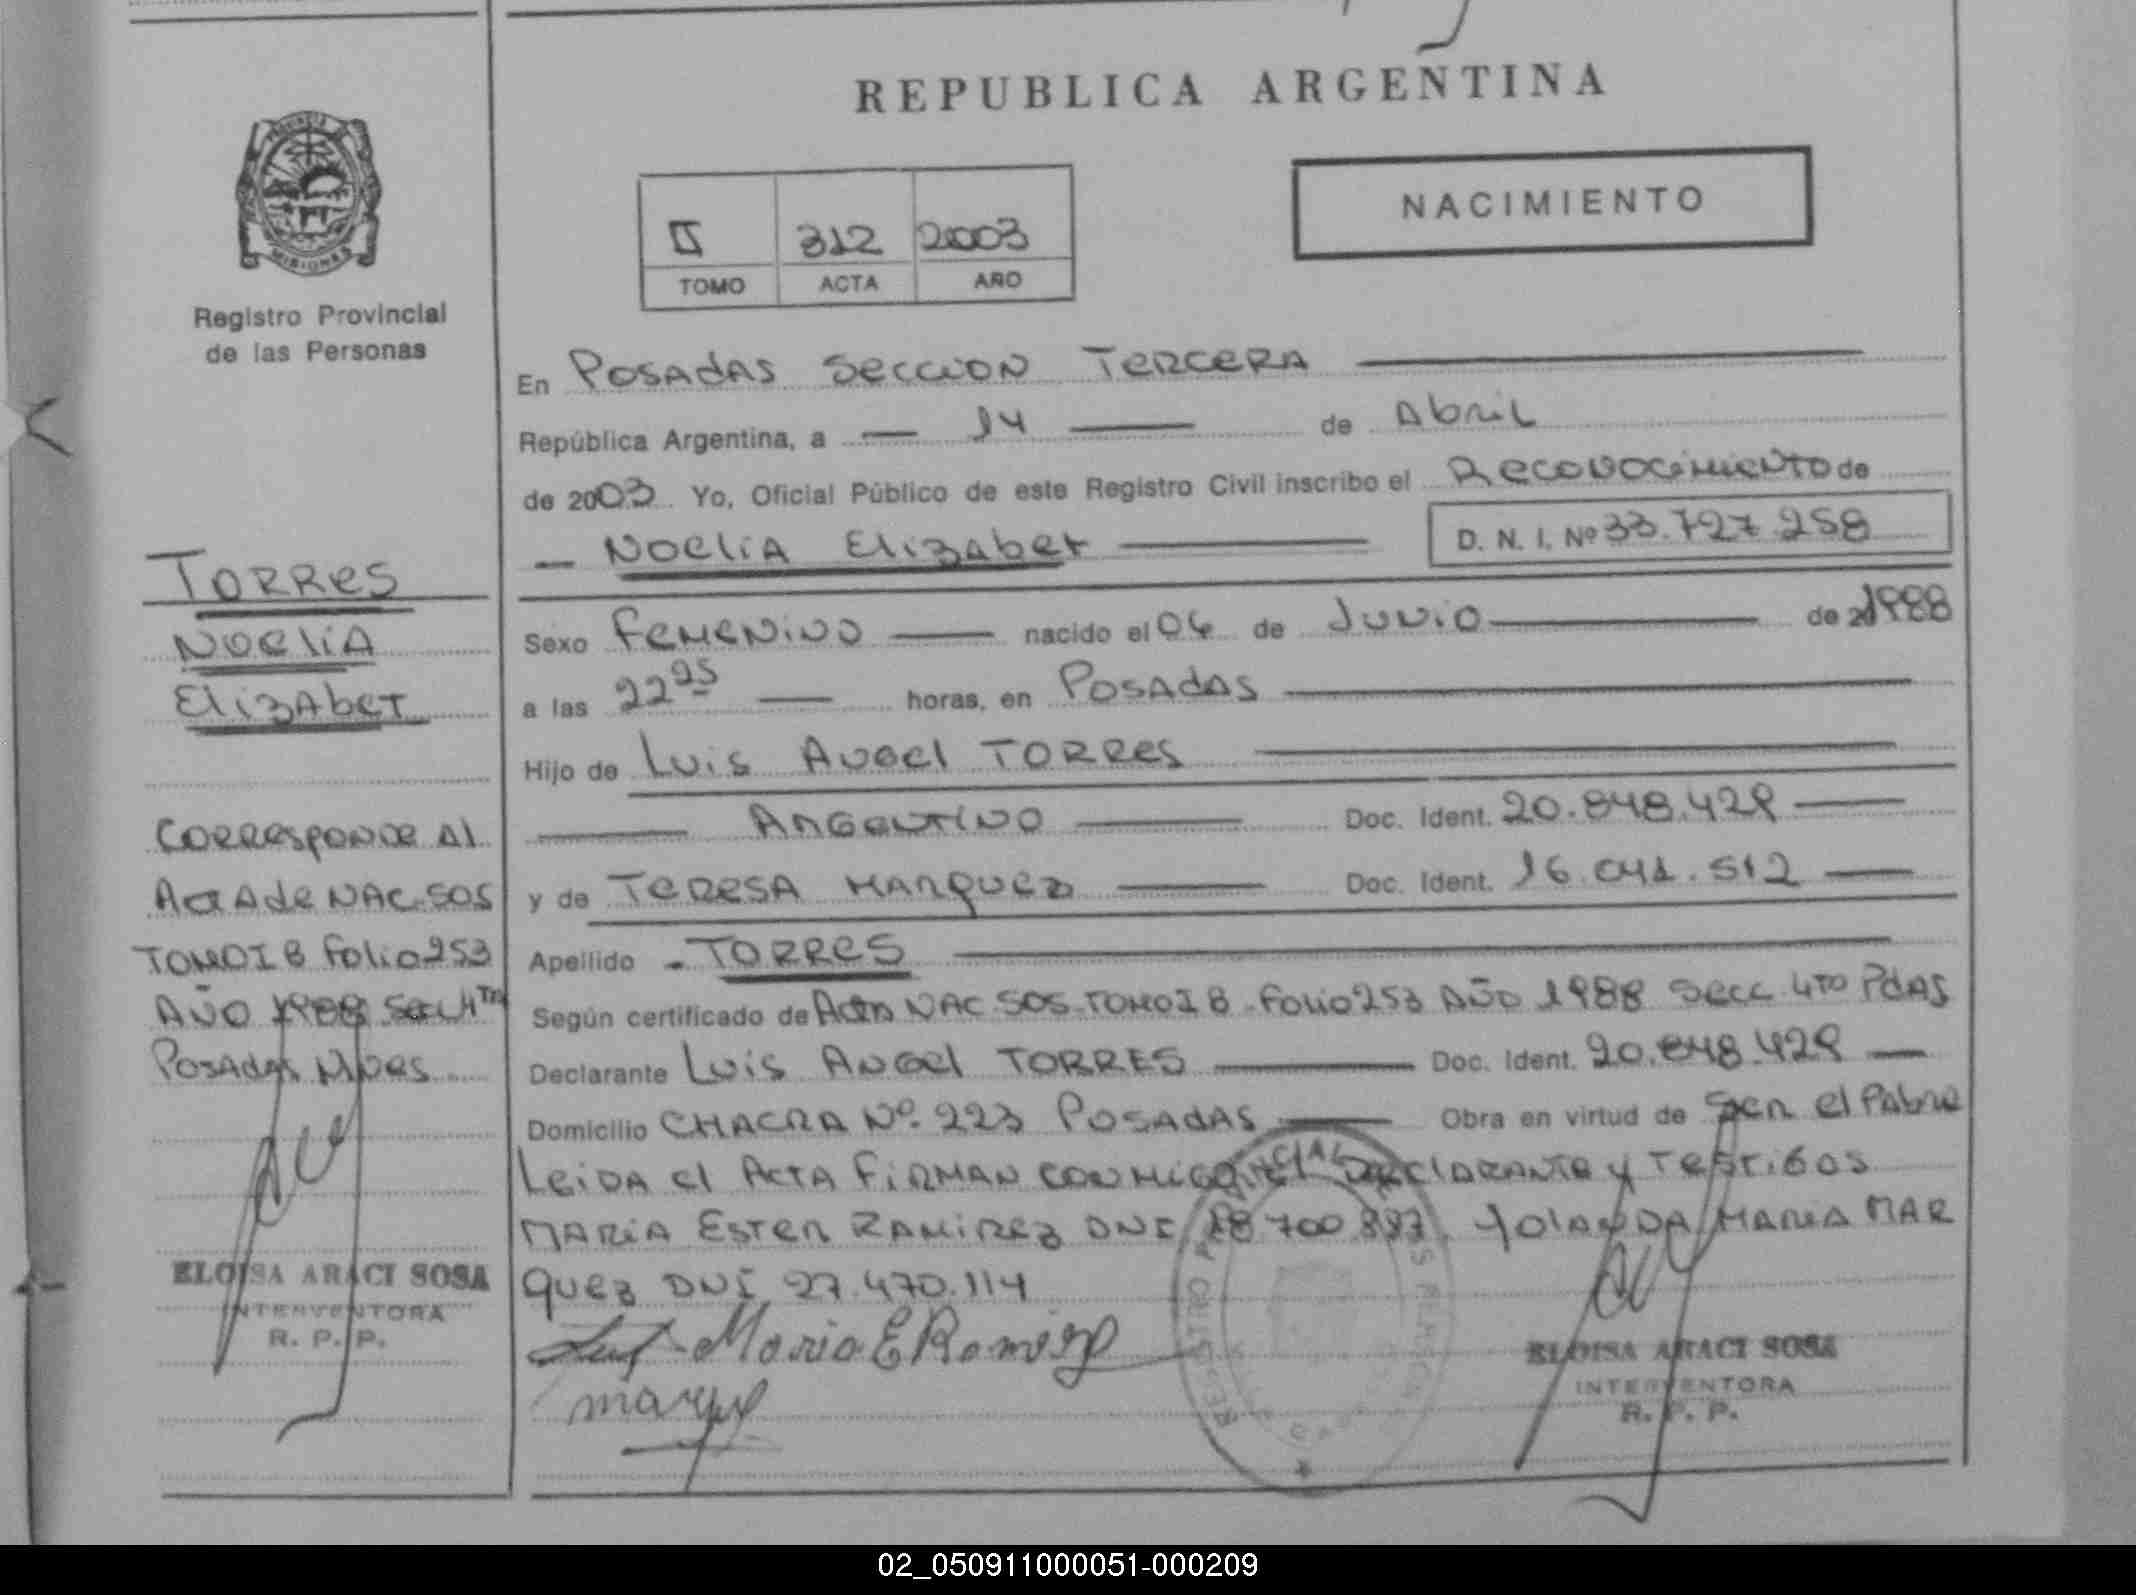 REPUBLICA ARGENTINA
NACIMIENTO
II 312 2003
TOMO ACTA AÑO
MISIONES
Registro Provincial
de las Personas
TORRES
NOELIA
ELIZABET
CORRESPONDE AL
ACTA de NAC. 505
TOMO I B Folio 253
AÑO 1988 Secc 4ta
POSADAS Mnes
ELOISA ARACI SOSA
INTERVENTORA
R. P. P.
En POSADAS SECCION TERCERA
República Argentina, a 14 de Abril
de 2003 Yo, Oficial Público de este Registro Civil inscribo el Reconocimiento de
NOELIA ELIZABET D. N. I. Nº 33.727.258
Sexo FEMENINO nacido el 06 de JUNIO de 1988
a las 22 25 horas, en POSADAS
Hijo de LUIS ANGEL TORRES
ARGENTINO Doc. Ident. 20.848.429
y de TERESA MARQUEZ Doc. Ident. 16.041.512
Apellido TORRES
Según certificado de Acta NAC 505 TOMO I B - Folio 253 AÑO 1988 Secc 4TO Pdas
Declarante LUIS ANGEL TORRES Doc. Ident. 20.848.429
Domicilio CHACRA Nº 223 POSADAS Obra en virtud de Ser el Padre
LEIDA el ACTA FIRMAN CONMIGO el DECLARANTE y TESTIGOS
MARIA ESTER RAMIREZ DNI 18.700.887 YOLANDA MARIA MAR
QUEZ DNI 27.470.114
Maria E Ramirez
ELOISA ARACI SOSA
INTERVENTORA
R. P. P.
02_050911000051-000209